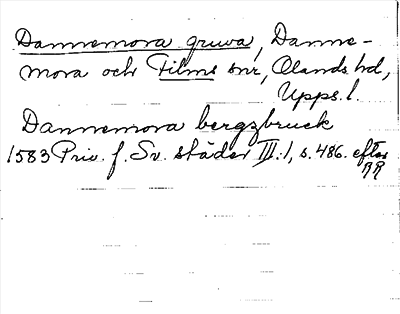 Dannemora gruva, Danne-
mora och Films snr, Olands hd,
Upps. l.
Dannemora bergzbruck
1583 Priv. f. Sv. städer III:1, s. 486. efter
RR